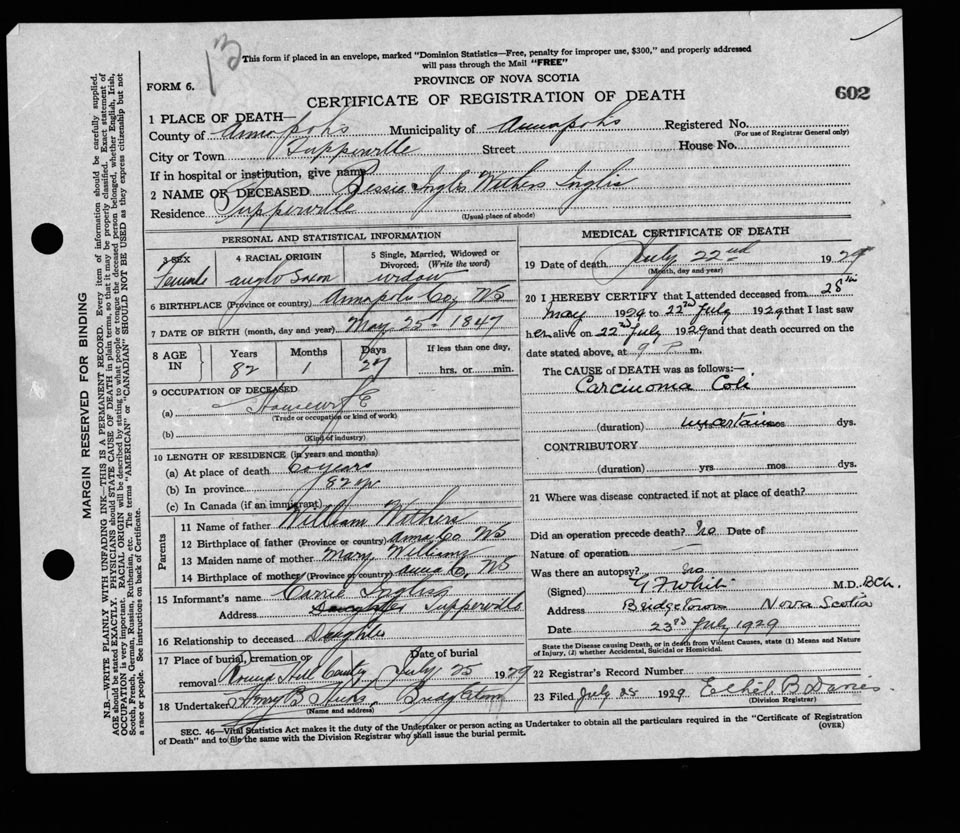 13
This form if placed in an envelope, marked "Dominion Statistics—Free, penalty for improper use, $300," and properly addressed
will pass through the Mail "FREE"
FORM 6.
PROVINCE OF NOVA SCOTIA
CERTIFICATE OF REGISTRATION OF DEATH
602
1 PLACE OF DEATH—
County of Annapolis Municipality of Annapolis Registered No.
(For use of Registrar General only)
City or Town Tupperville Street House No.
If in hospital or institution, give name
2 NAME OF DECEASED Bessie Inglis Withers Inglis
Residence Tupperville
(Usual place of abode)
PERSONAL AND STATISTICAL INFORMATION
3 SEX 4 RACIAL ORIGIN 5 Single, Married, Widowed or Divorced. (Write the word)
Female anglo Saxon widow
6 BIRTHPLACE (Province or country) Annapolis Coy NS
7 DATE OF BIRTH (month, day and year) May 25 - 1847
8 AGE IN Years Months Days If less than one day,
82 1 27 hrs. or min.
9 OCCUPATION OF DECEASED
(a) Housewife
(Trade or occupation or kind of work)
(b)
(Kind of industry)
10 LENGTH OF RESIDENCE (in years and months)
(a) At place of death 60 years
(b) In province 82 yr
(c) In Canada (if an immigrant)
Parents
11 Name of father William Withers
12 Birthplace of father (Province or country) Anna Co NS
13 Maiden name of mother Mary Williams
14 Birthplace of mother (Province or country) anna Co, NS
15 Informant's name Carrie Inglis
Address Daughter Tupperville
16 Relationship to deceased Daughter
17 Place of burial, cremation or removal Round Hill Date of burial July 25 1929
18 Undertaker Bridgetown
(Name and address)
MEDICAL CERTIFICATE OF DEATH
19 Date of death July 22nd 1929
(Month, day and year)
20 I HEREBY CERTIFY that I attended deceased from 28th
May 1929 to 22nd July 1929 that I last saw
her alive on 22nd July 1929 and that death occurred on the
date stated above, at 9 P. m.
The CAUSE of DEATH was as follows:—
Carcinoma Coli
(duration) uncertain mos dys.
CONTRIBUTORY
(duration) yrs mos dys.
21 Where was disease contracted if not at place of death?
Did an operation precede death? No Date of
Nature of operation —
Was there an autopsy? no
(Signed) M.D. B.Ch.
Address Bridgetown Nova Scotia
Date 23rd July 1929
State the Disease causing Death, or in death from Violent Causes, state (1) Means and Nature
of Injury, (2) whether Accidental, Suicidal or Homicidal.
22 Registrar's Record Number
23 Filed July 25 1929 Ethel B Davies
(Division Registrar)
SEC. 46—Vital Statistics Act makes it the duty of the Undertaker or person acting as Undertaker to obtain all the particulars required in the "Certificate of Registration
of Death" and to file the same with the Division Registrar who shall issue the burial permit.
(OVER)
MARGIN RESERVED FOR BINDING
N.B.—WRITE PLAINLY WITH UNFADING INK—THIS IS A PERMANENT RECORD. Every item of information should be carefully supplied.
AGE should be stated EXACTLY. PHYSICIANS should STATE CAUSE OF DEATH in plain terms, so that it may be properly classified. Exact statement of
OCCUPATION is very important. RACIAL ORIGIN will be described by stating to what people or tongue the deceased person belonged, whether English, Irish,
Scotch, French, German, Russian, Ruthenian, etc. The terms "AMERICAN" or "CANADIAN" SHOULD NOT BE USED as they express citizenship but not
a race or people. See instructions on back of Certificate.